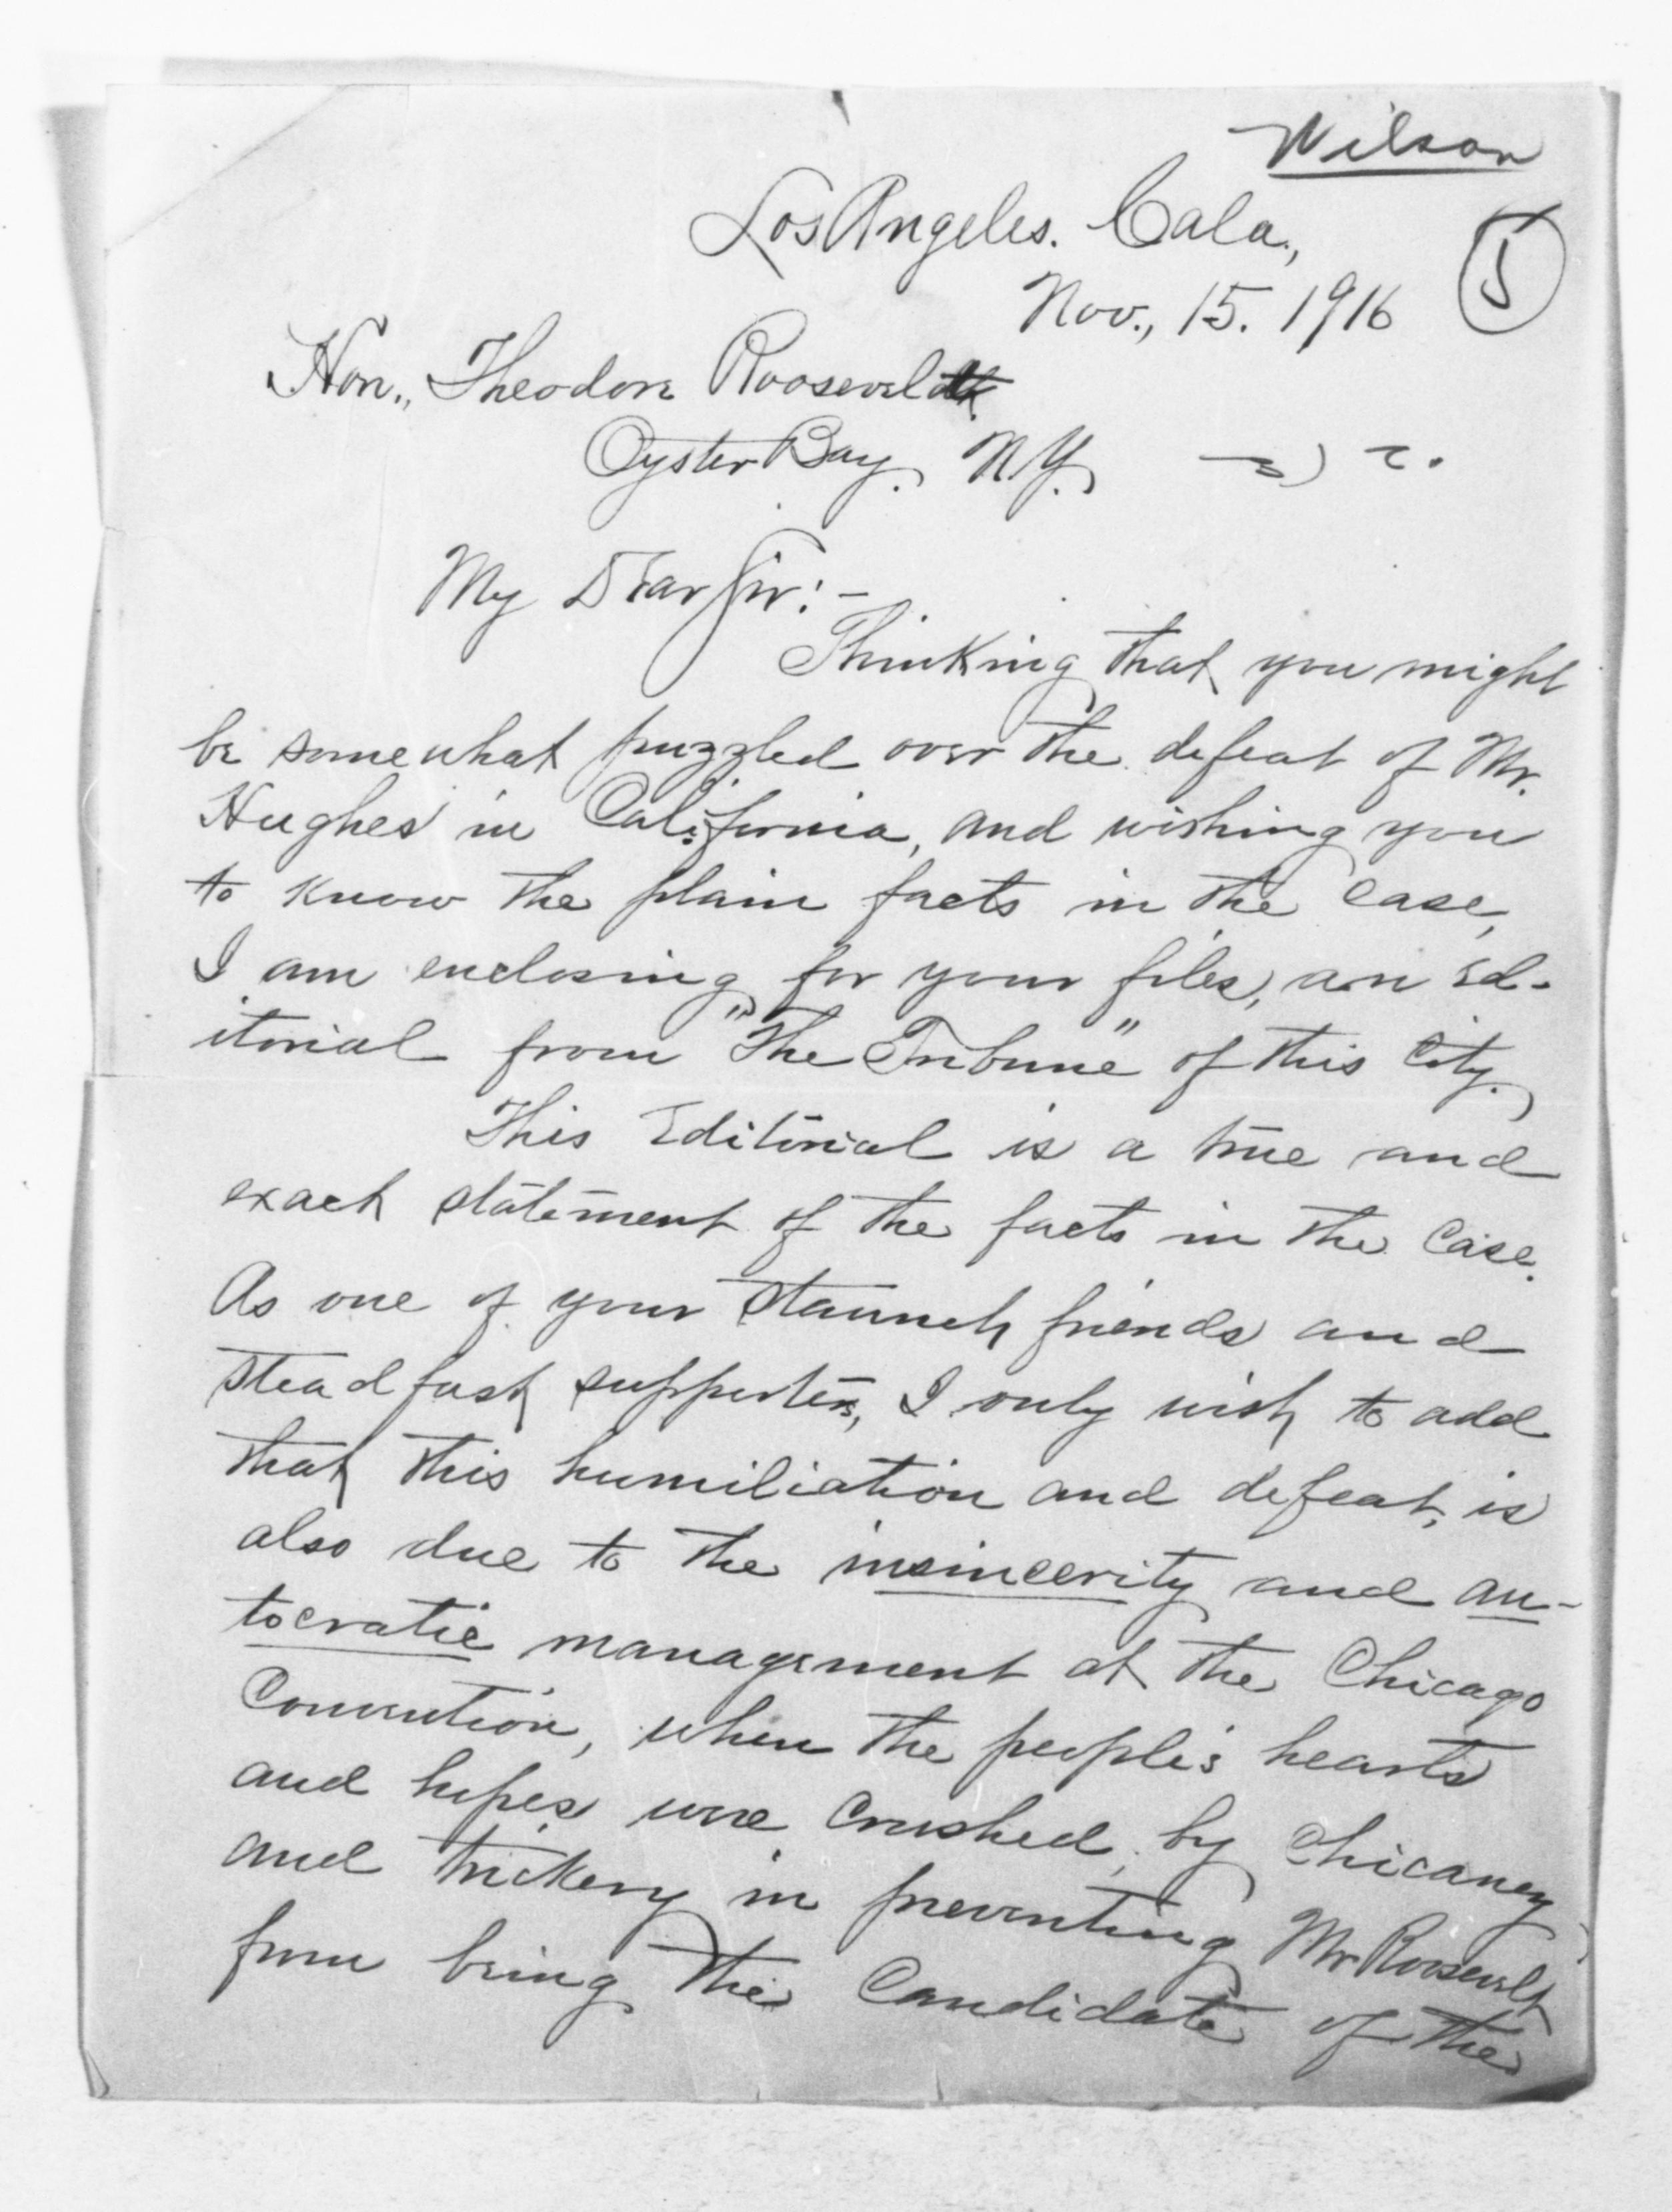 Wilson
Los Angeles. Cala.,
Nov., 15. 1916
Hon., Theodore Roosevelt
Oyster Bay. N.Y.
My Dear Sir:-
Thinking that you might
be somewhat puzzled over the defeat of Mr.
Hughes in California, and wishing you
to know the plain facts in the case,
I am enclosing for your files, an Ed-
itorial from "The Tribune" of this City.
This Editorial is a true and
exact statement of the facts in the case.
As one of your staunch friends and
steadfast supporters, I only wish to add
that this humiliation and defeat, is
also due to the insincerity and au-
tocratic management at the Chicago
Convention, when the people's hearts
and hopes were crushed, by chicaney
and trickery in preventing Mr Roosevelt
from being the Candidate of the